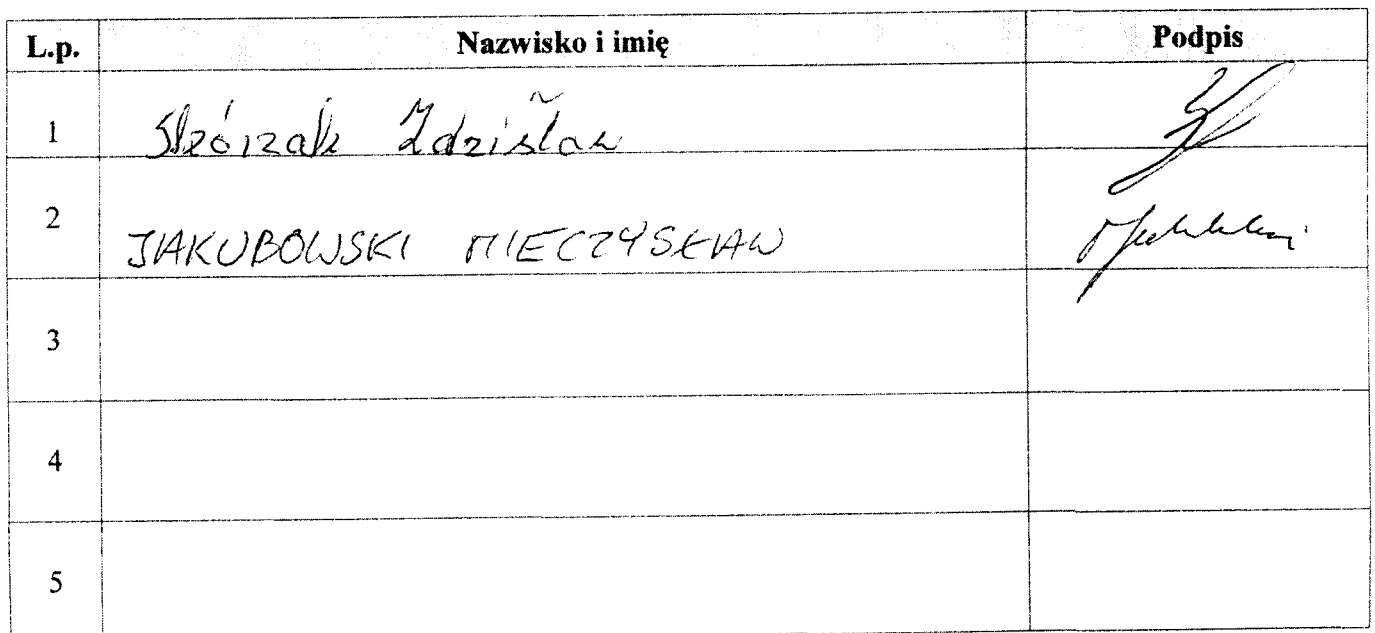 L.p. Nazwisko i imię Podpis
1 Zdzisław
2 JAKUBOWSKI MIECZYSŁAW
3
4
5